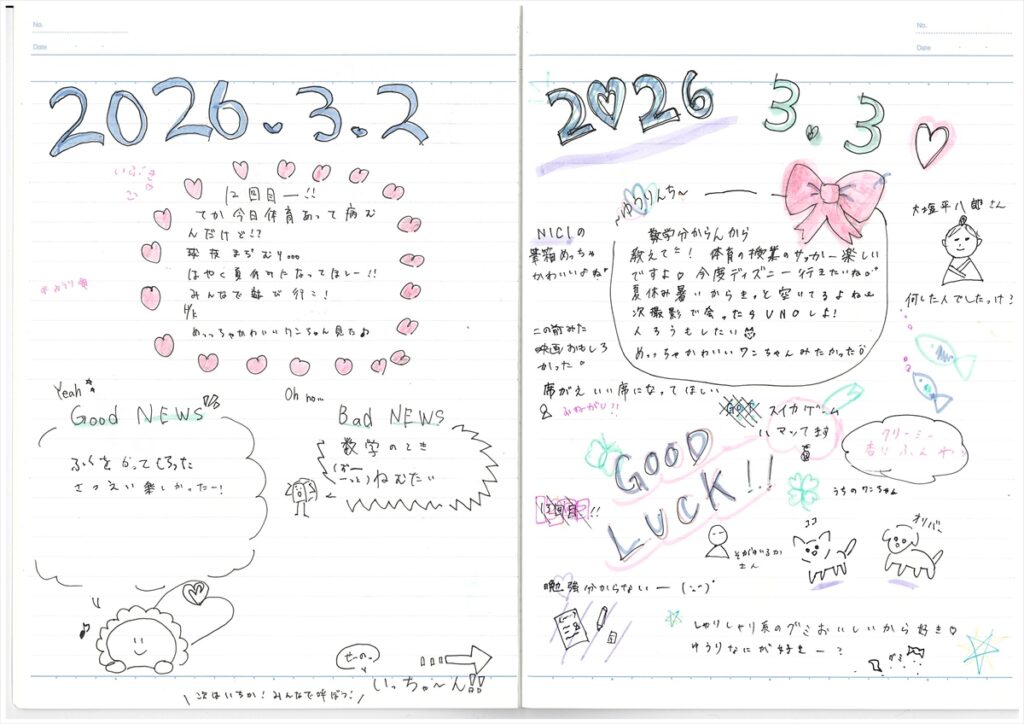 No.
Date
2026.3.2
いぶき
12回目ー!!
てか今日体育あって病む
んだけど!?
現役まぢむり。。。
はやく夏休みになってほしー!!
みんなで遊び行こ!
P.S.
めっちゃかわいいワンちゃん見た♪
Yeah
Good NEWS
ふくをかってもらった
さつえい楽しかったー!
Oh no...
Bad NEWS
数学のとき
ねむたい
せーのっ
いっちゃ〜ん!!
\次はいちか!みんなで呼ぼう!/
No.
Date
2026
3.3
ゆうりんち〜
数学分からんから
教えて!体育の授業のサッカー楽しい
ですよ 今度ディズニー行きたいね
夏休み暑いからきっと空いてるよね
次撮影で会ったらUNOしよ!
人ろうもしたい
めっちゃかわいいワンちゃんみたかった
NICIの
筆箱めっちゃ
かわいいよね?
この前みた
映画おもしろ
かった。
大塩平八郎さん
何した人でしたっけ?
席がえいい席になってほしい
おねがい!!
スイカゲーム
ハマってます
クリーミー
GOOD
LUCK!!
13回目!!
うちのワンちゃん
ココ
オリバー
そがのいるか
さん
勉強分からないー
しゃりしゃり系のグミおいしいから好き
ゆうりなにが好きー?
グミ